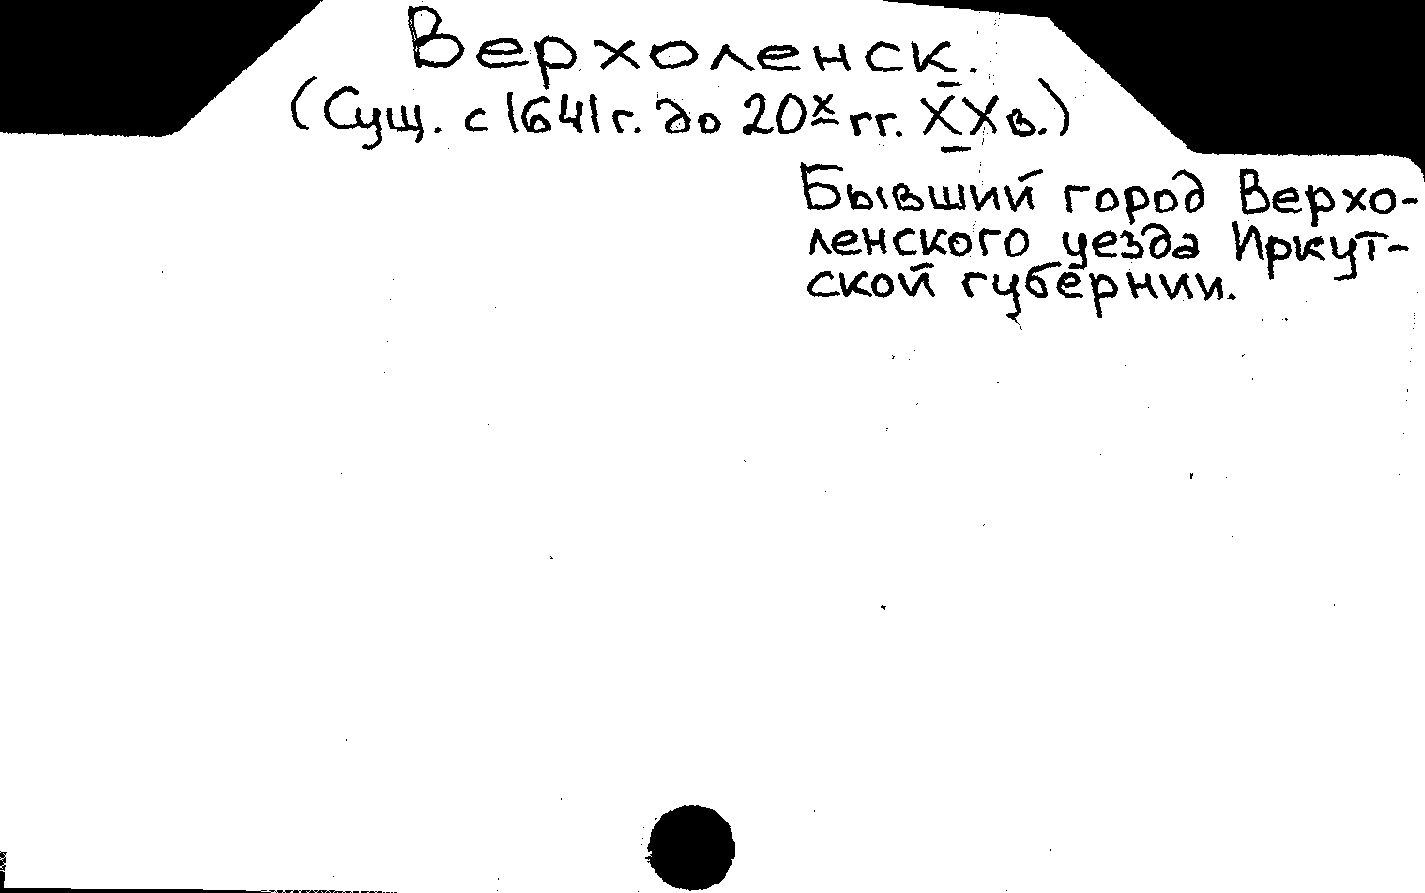 Верхоленск.
(Сущ. с 1641 г. до 20х гг. XX в.)
Бывший город Верхо-
ленского уезда Иркут-
ской губернии.